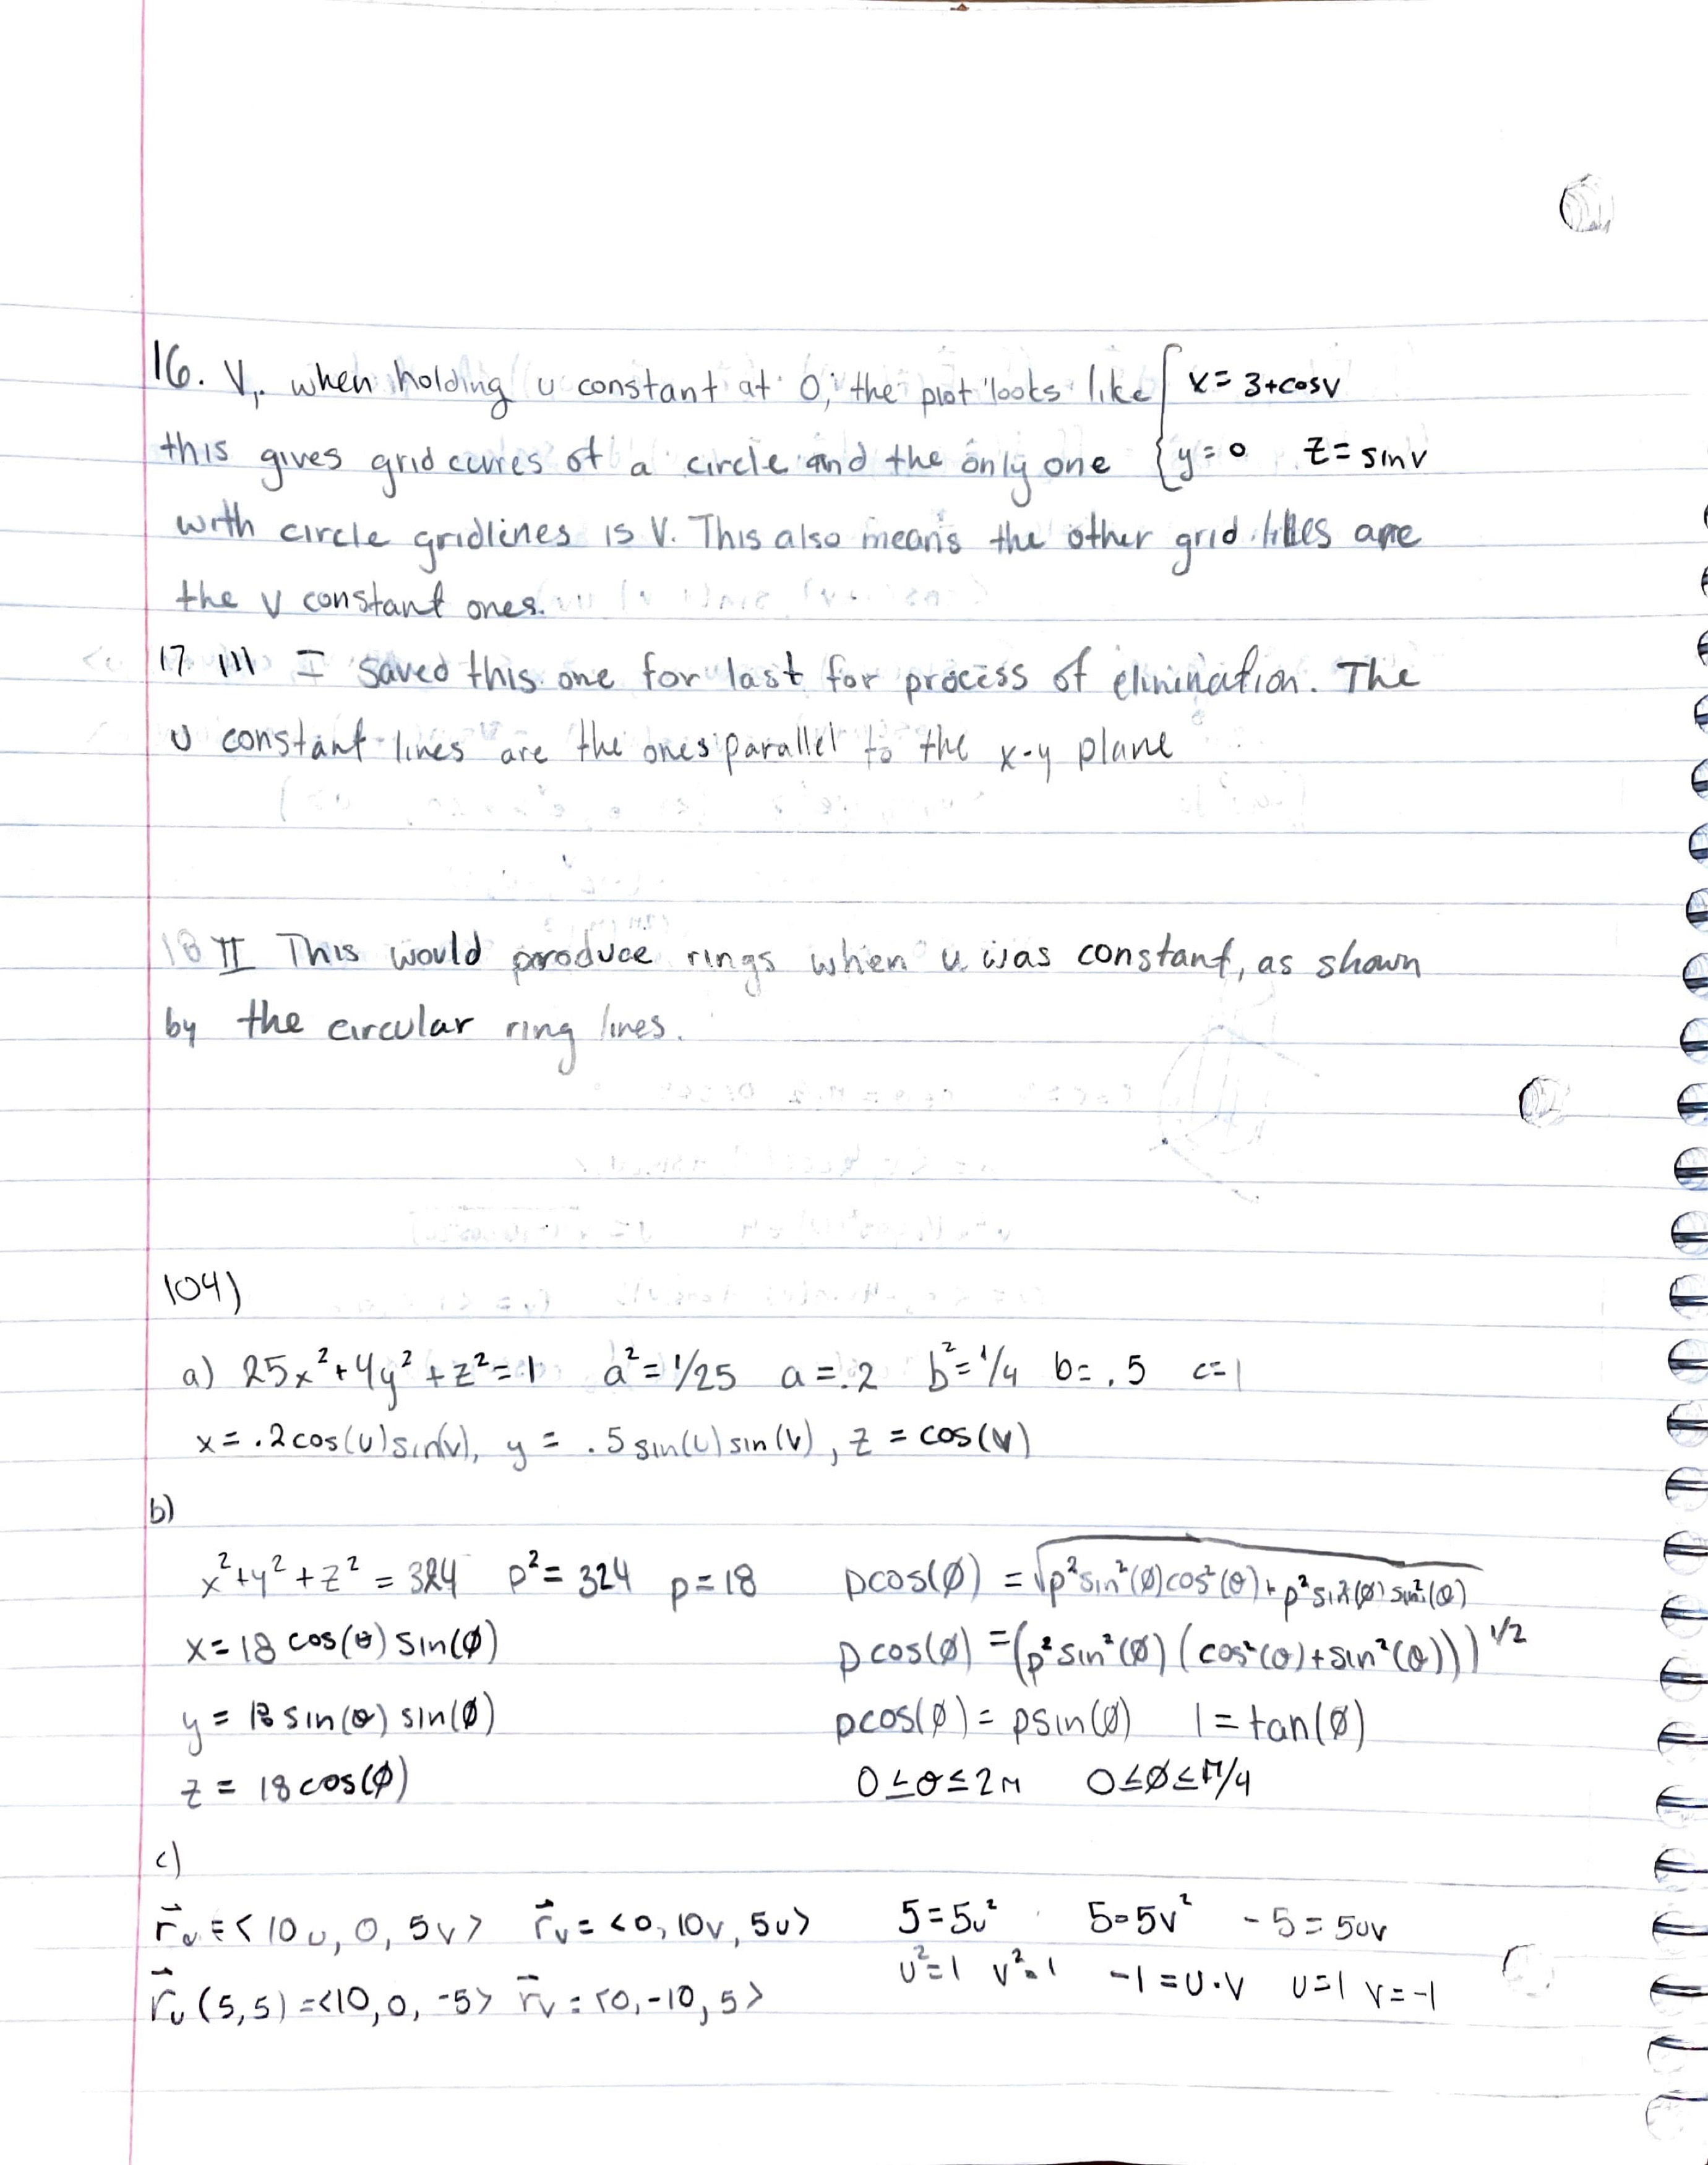 16. V, when holding u constant at 0, the plot looks like { x = 3+cosv
this gives grid cuves of a circle and the only one { y = 0 z = sinv
with circle gridlines is V. This also means the other grid lines are
the v constant ones.
17 III I saved this one for last for process of elinination. The
u constant lines are the ones parallel to the x-y plane
18 II This would produce rings when u was constant, as shown
by the circular ring lines.
104)
a) 25x²+4y²+z²=1 a²=1/25 a=.2 b²=1/4 b=.5 c=1
x=.2cos(u)sin(v), y=.5sin(u)sin(v), z=cos(v)
b)
x²+y²+z²=324 p²=324 p=18 pcos(ø)=√p²sin²(ø)cos²(θ)+p²sin²(ø)sin²(θ)
x=18cos(θ)sin(ø) pcos(ø)=(p²sin²(ø)(cos²(θ)+sin²(θ)))^1/2
y=18sin(θ)sin(ø) pcos(ø)=psin(ø) 1=tan(ø)
z=18cos(ø) 0≤θ≤2π 0≤ø≤π/4
c)
r⃗u=<10u, 0, 5v> r⃗v=<0, 10v, 5u> 5=5u² 5=5v² -5=5uv
u²=1 v²=1 -1=u·v u=1 v=-1
r⃗u(5,5)=<10, 0, -5> r⃗v=<0, -10, 5>